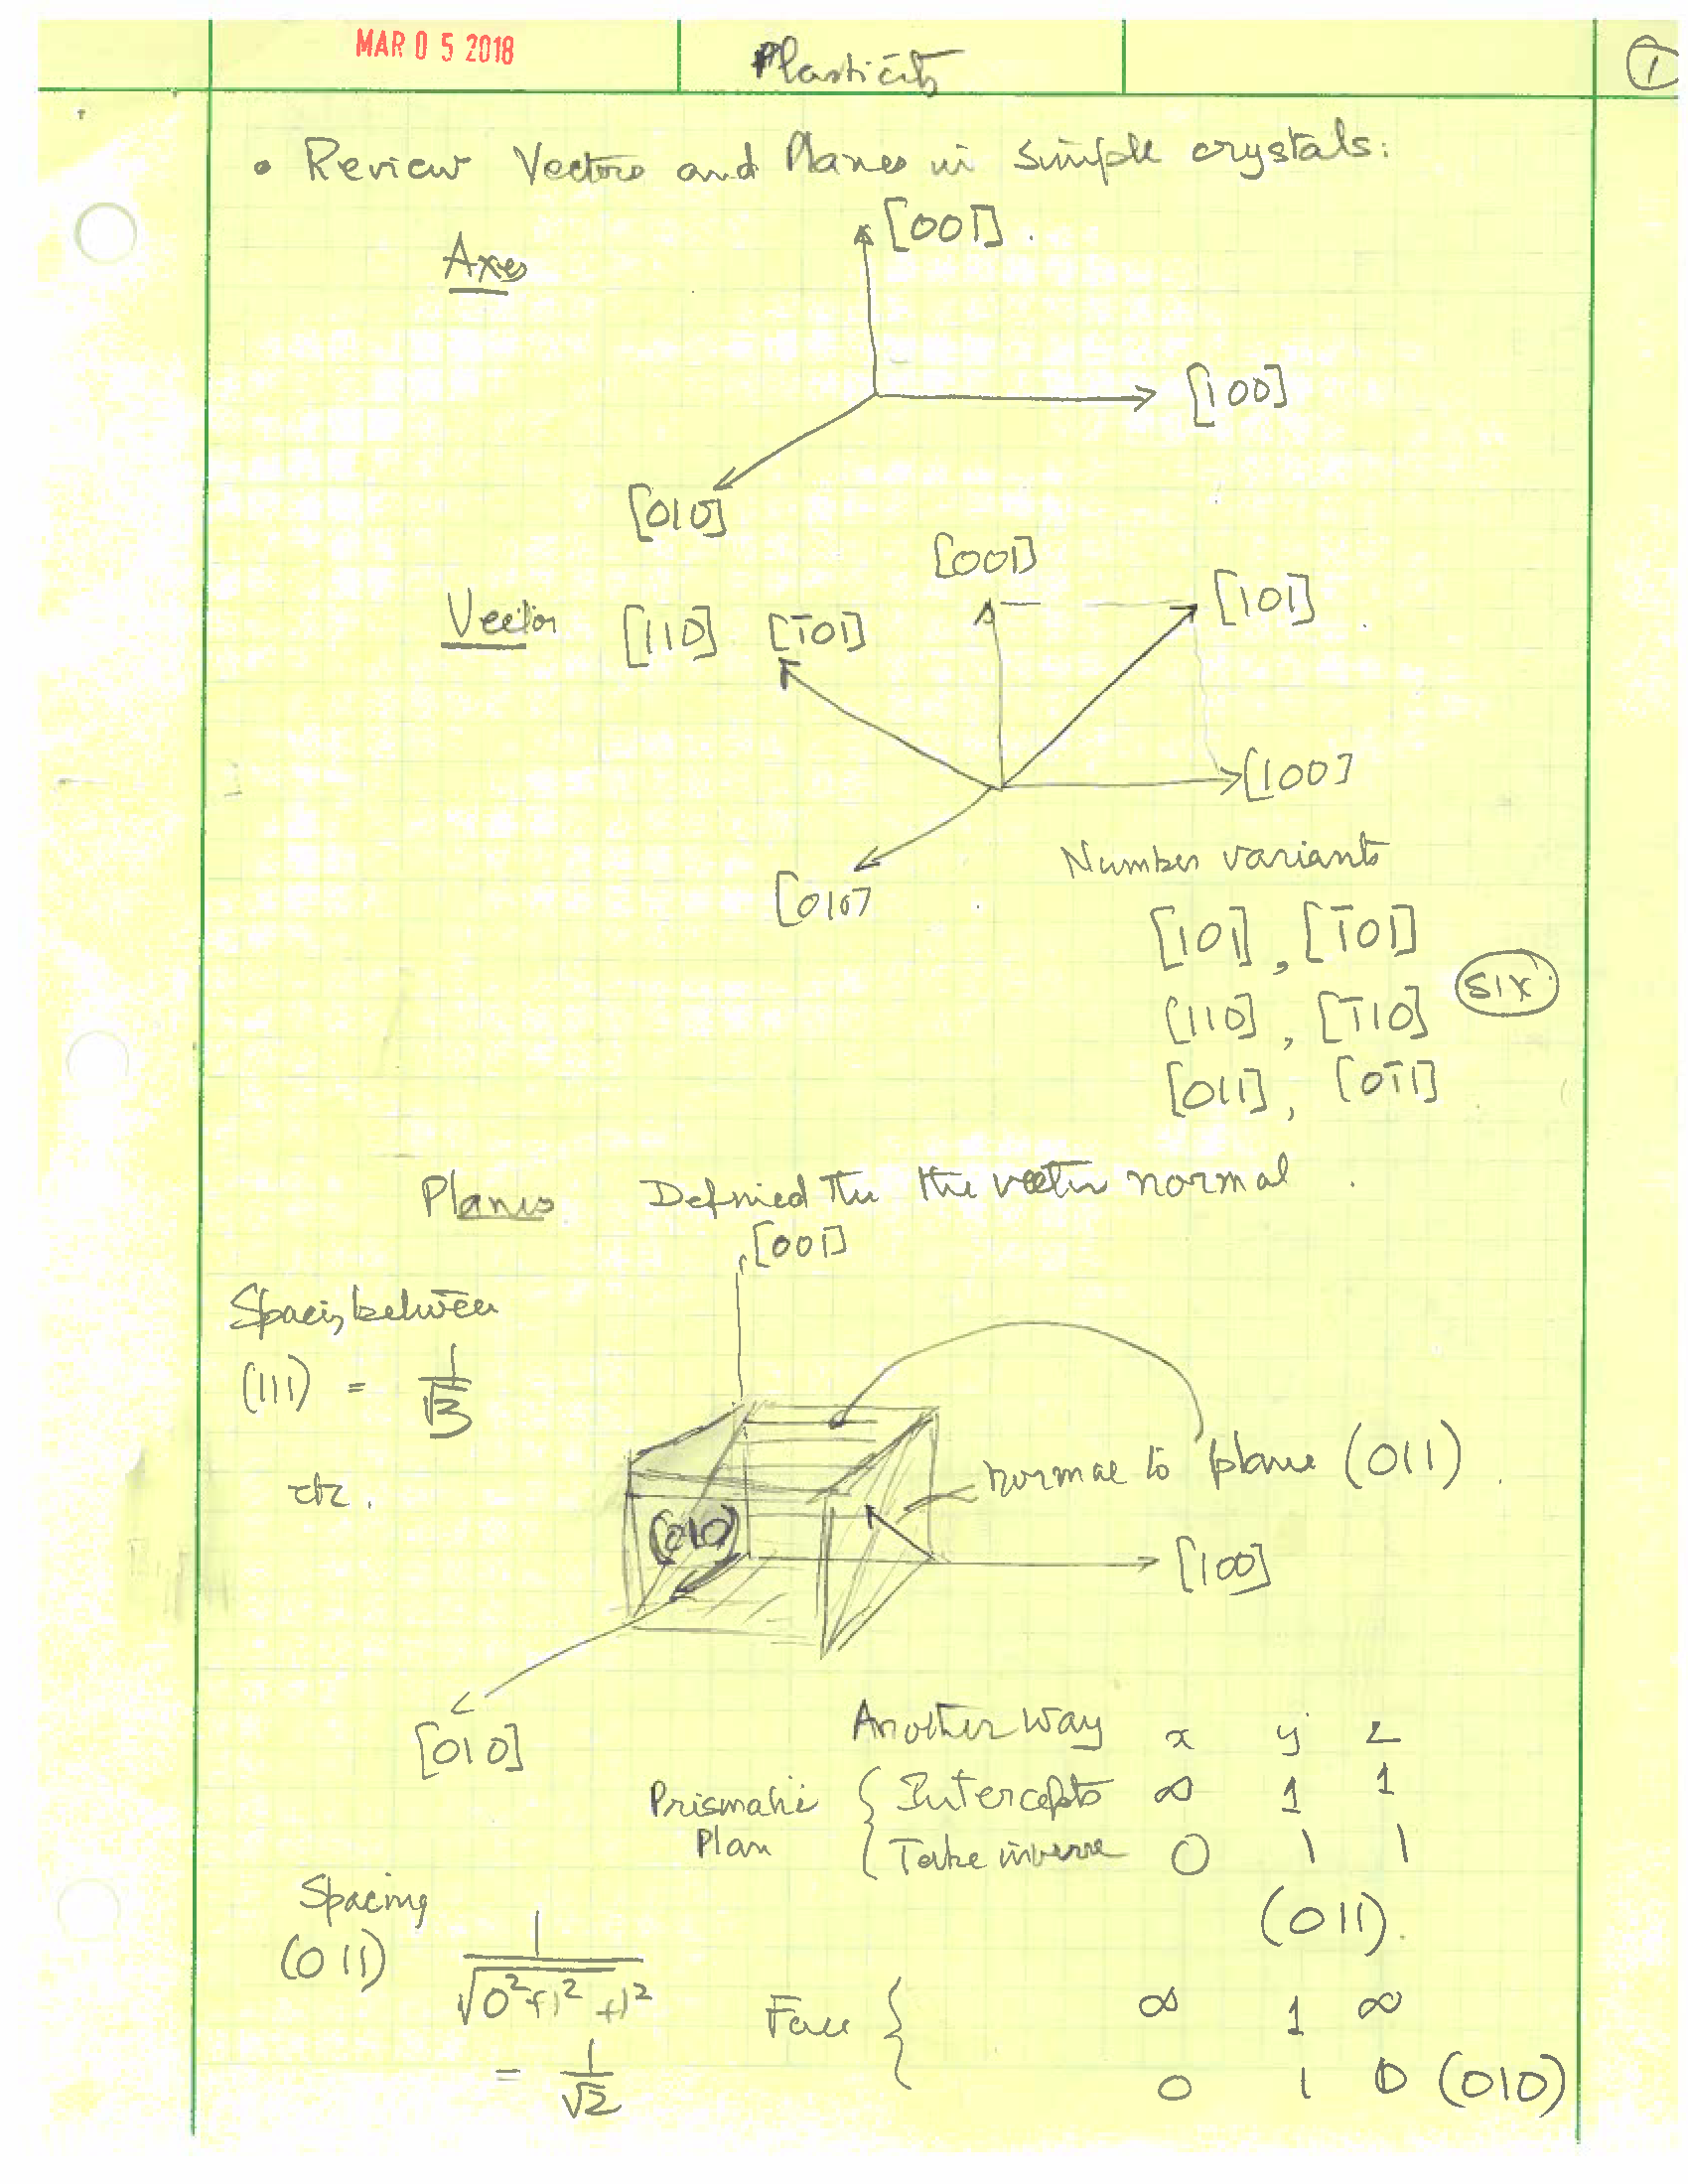 MAR 0 5 2018
Plasticity
1
• Review Vectors and Planes in simple crystals:
Axes
[001].
[100]
[010]
Vector [110] [1̄01]
[001]
[101]
[100]
[010]
Number variants
[101], [1̄01]
[110], [1̄10]
six
[011], [01̄1]
Planes Defined the vector normal.
[001]
Spacing between
(111) = 1/√3
etc.
(010)
normal to plane (011).
[100]
[010]
Another way x y z
Prismatic Plan { Intercepts ∞ 1 1
Take inverse 0 1 1
(011).
Spacing
(011) 1/√0²+1²+1²
= 1/√2
Face { ∞ 1 ∞
0 1 0 (010)